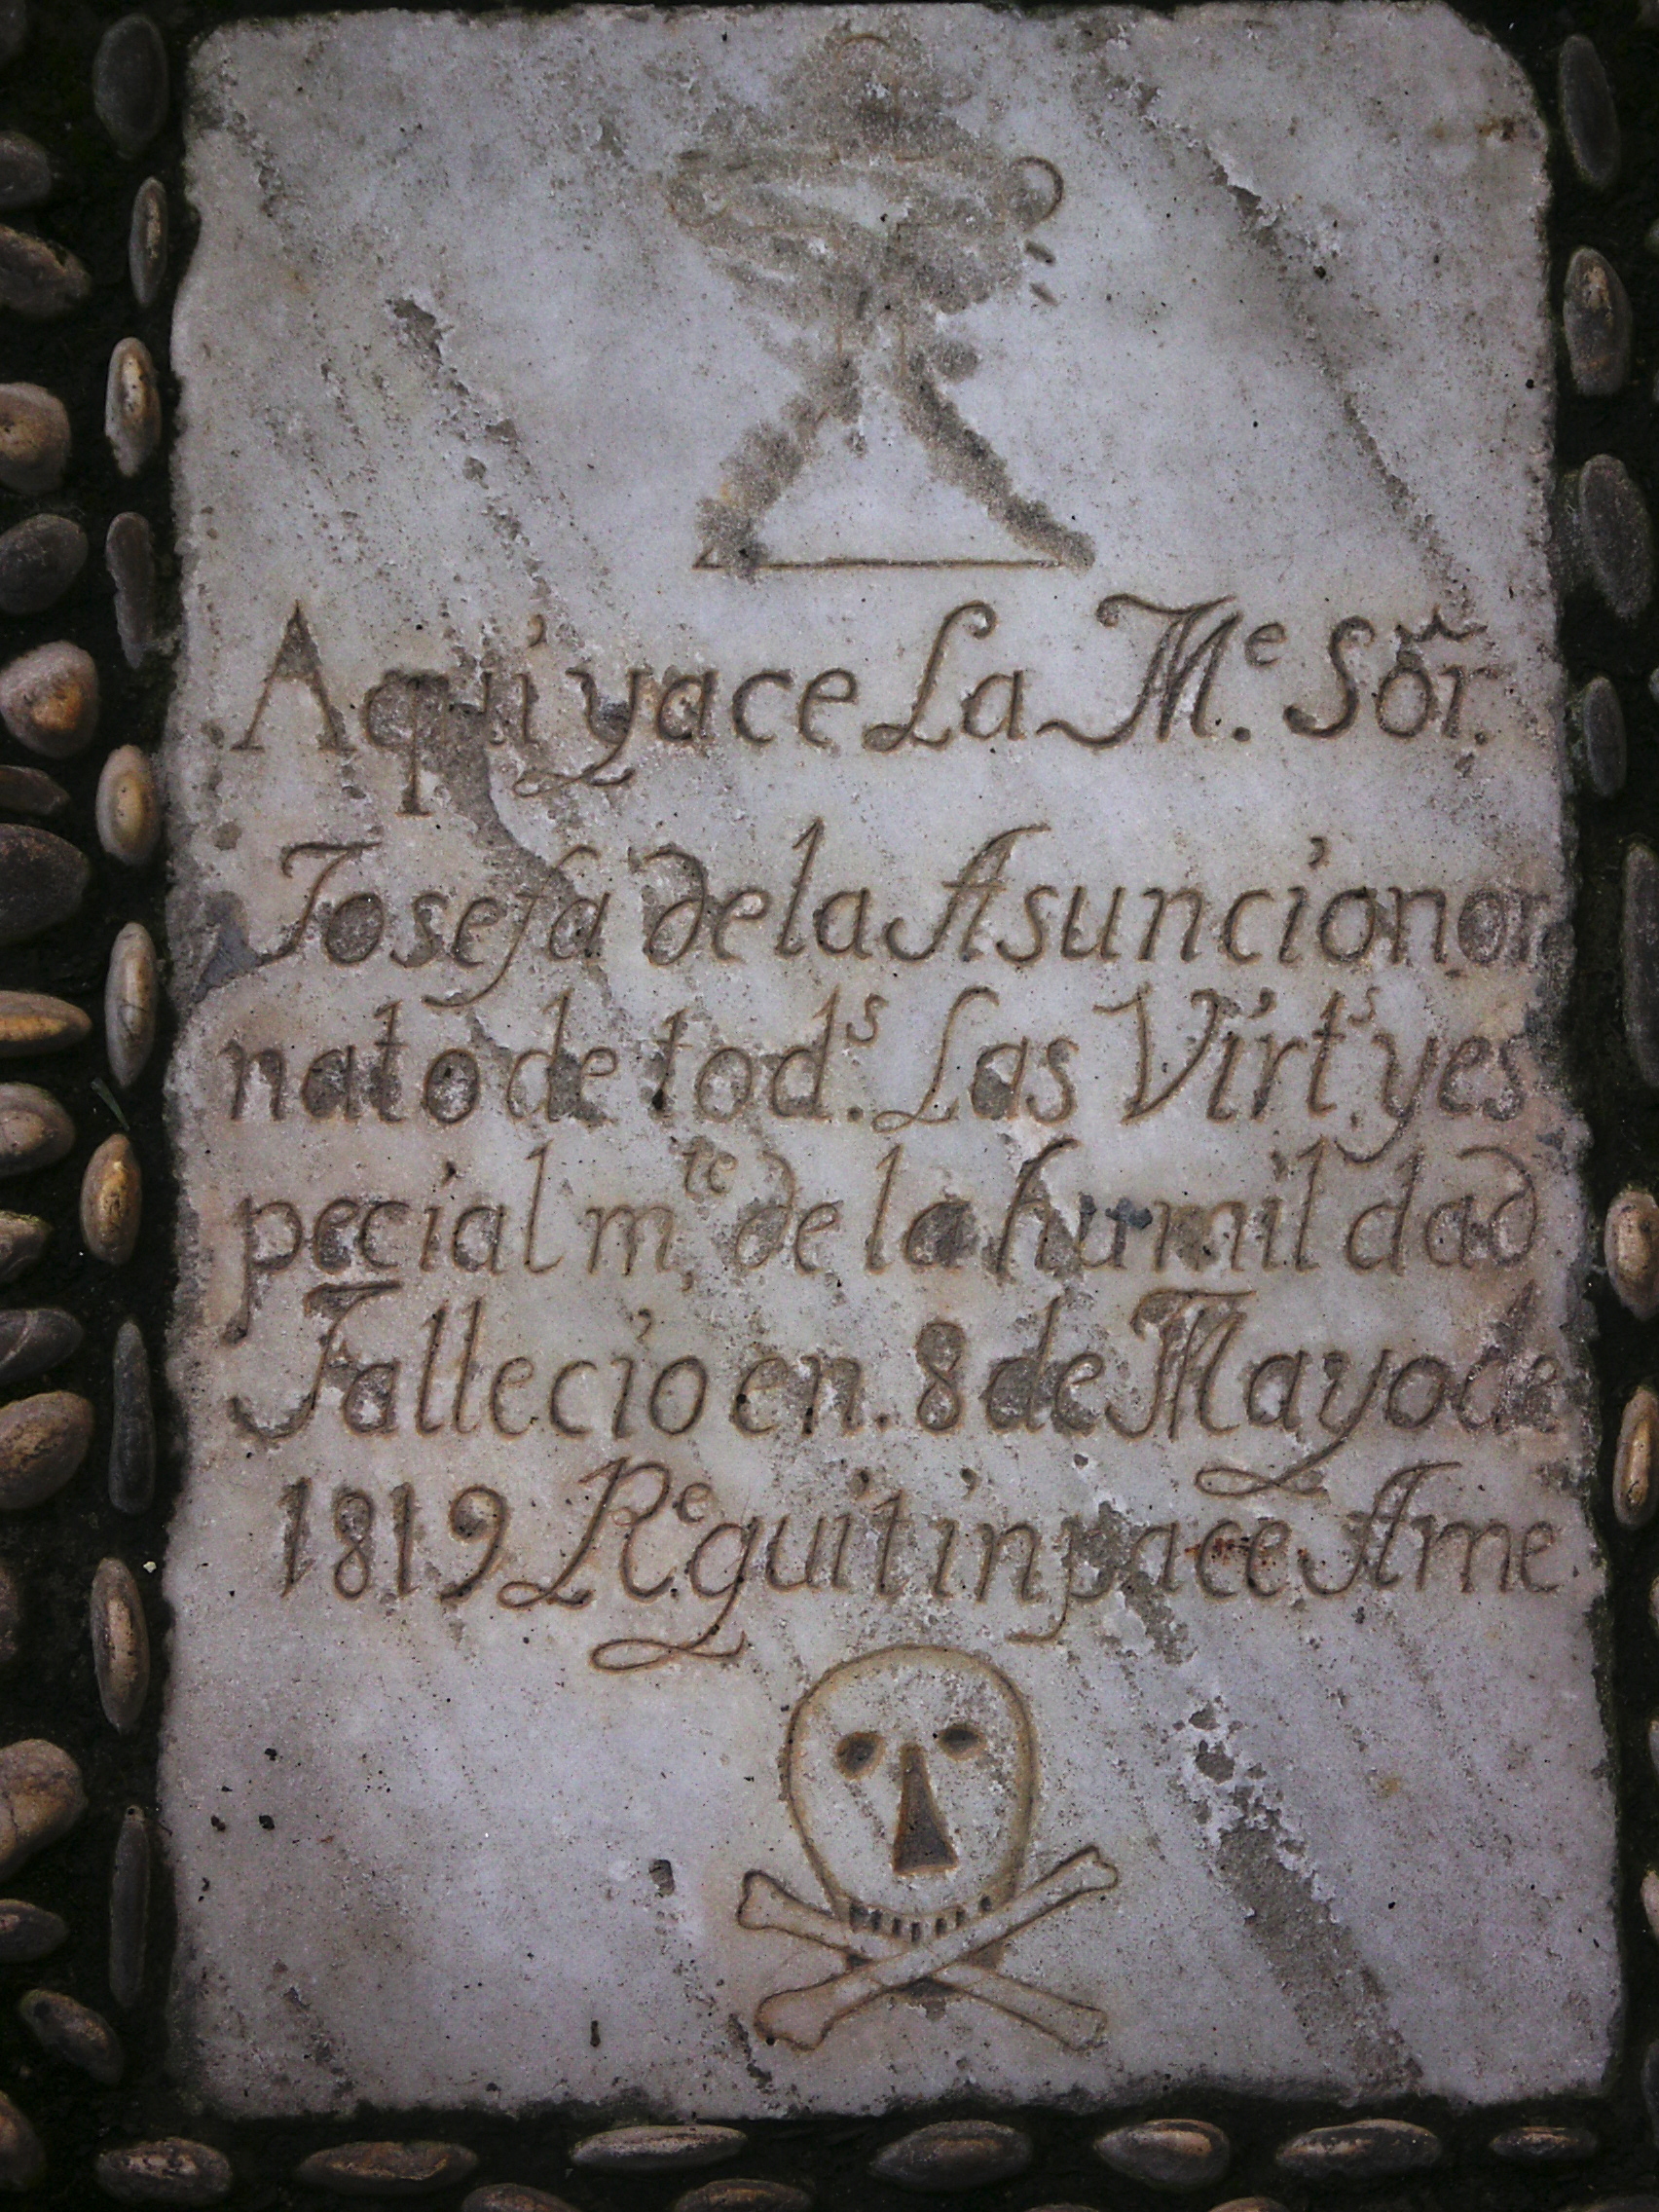 Aqui yace La M.ᵉ Sõr.
Josefa de la Asuncion or
nato de tod.ˢ Las Virt.ˢ y es
pecialm.ᵗᵉ de la humildad
Fallecio en. 8 de Mayo de
1819 R.ᵉquit in pace Ame.